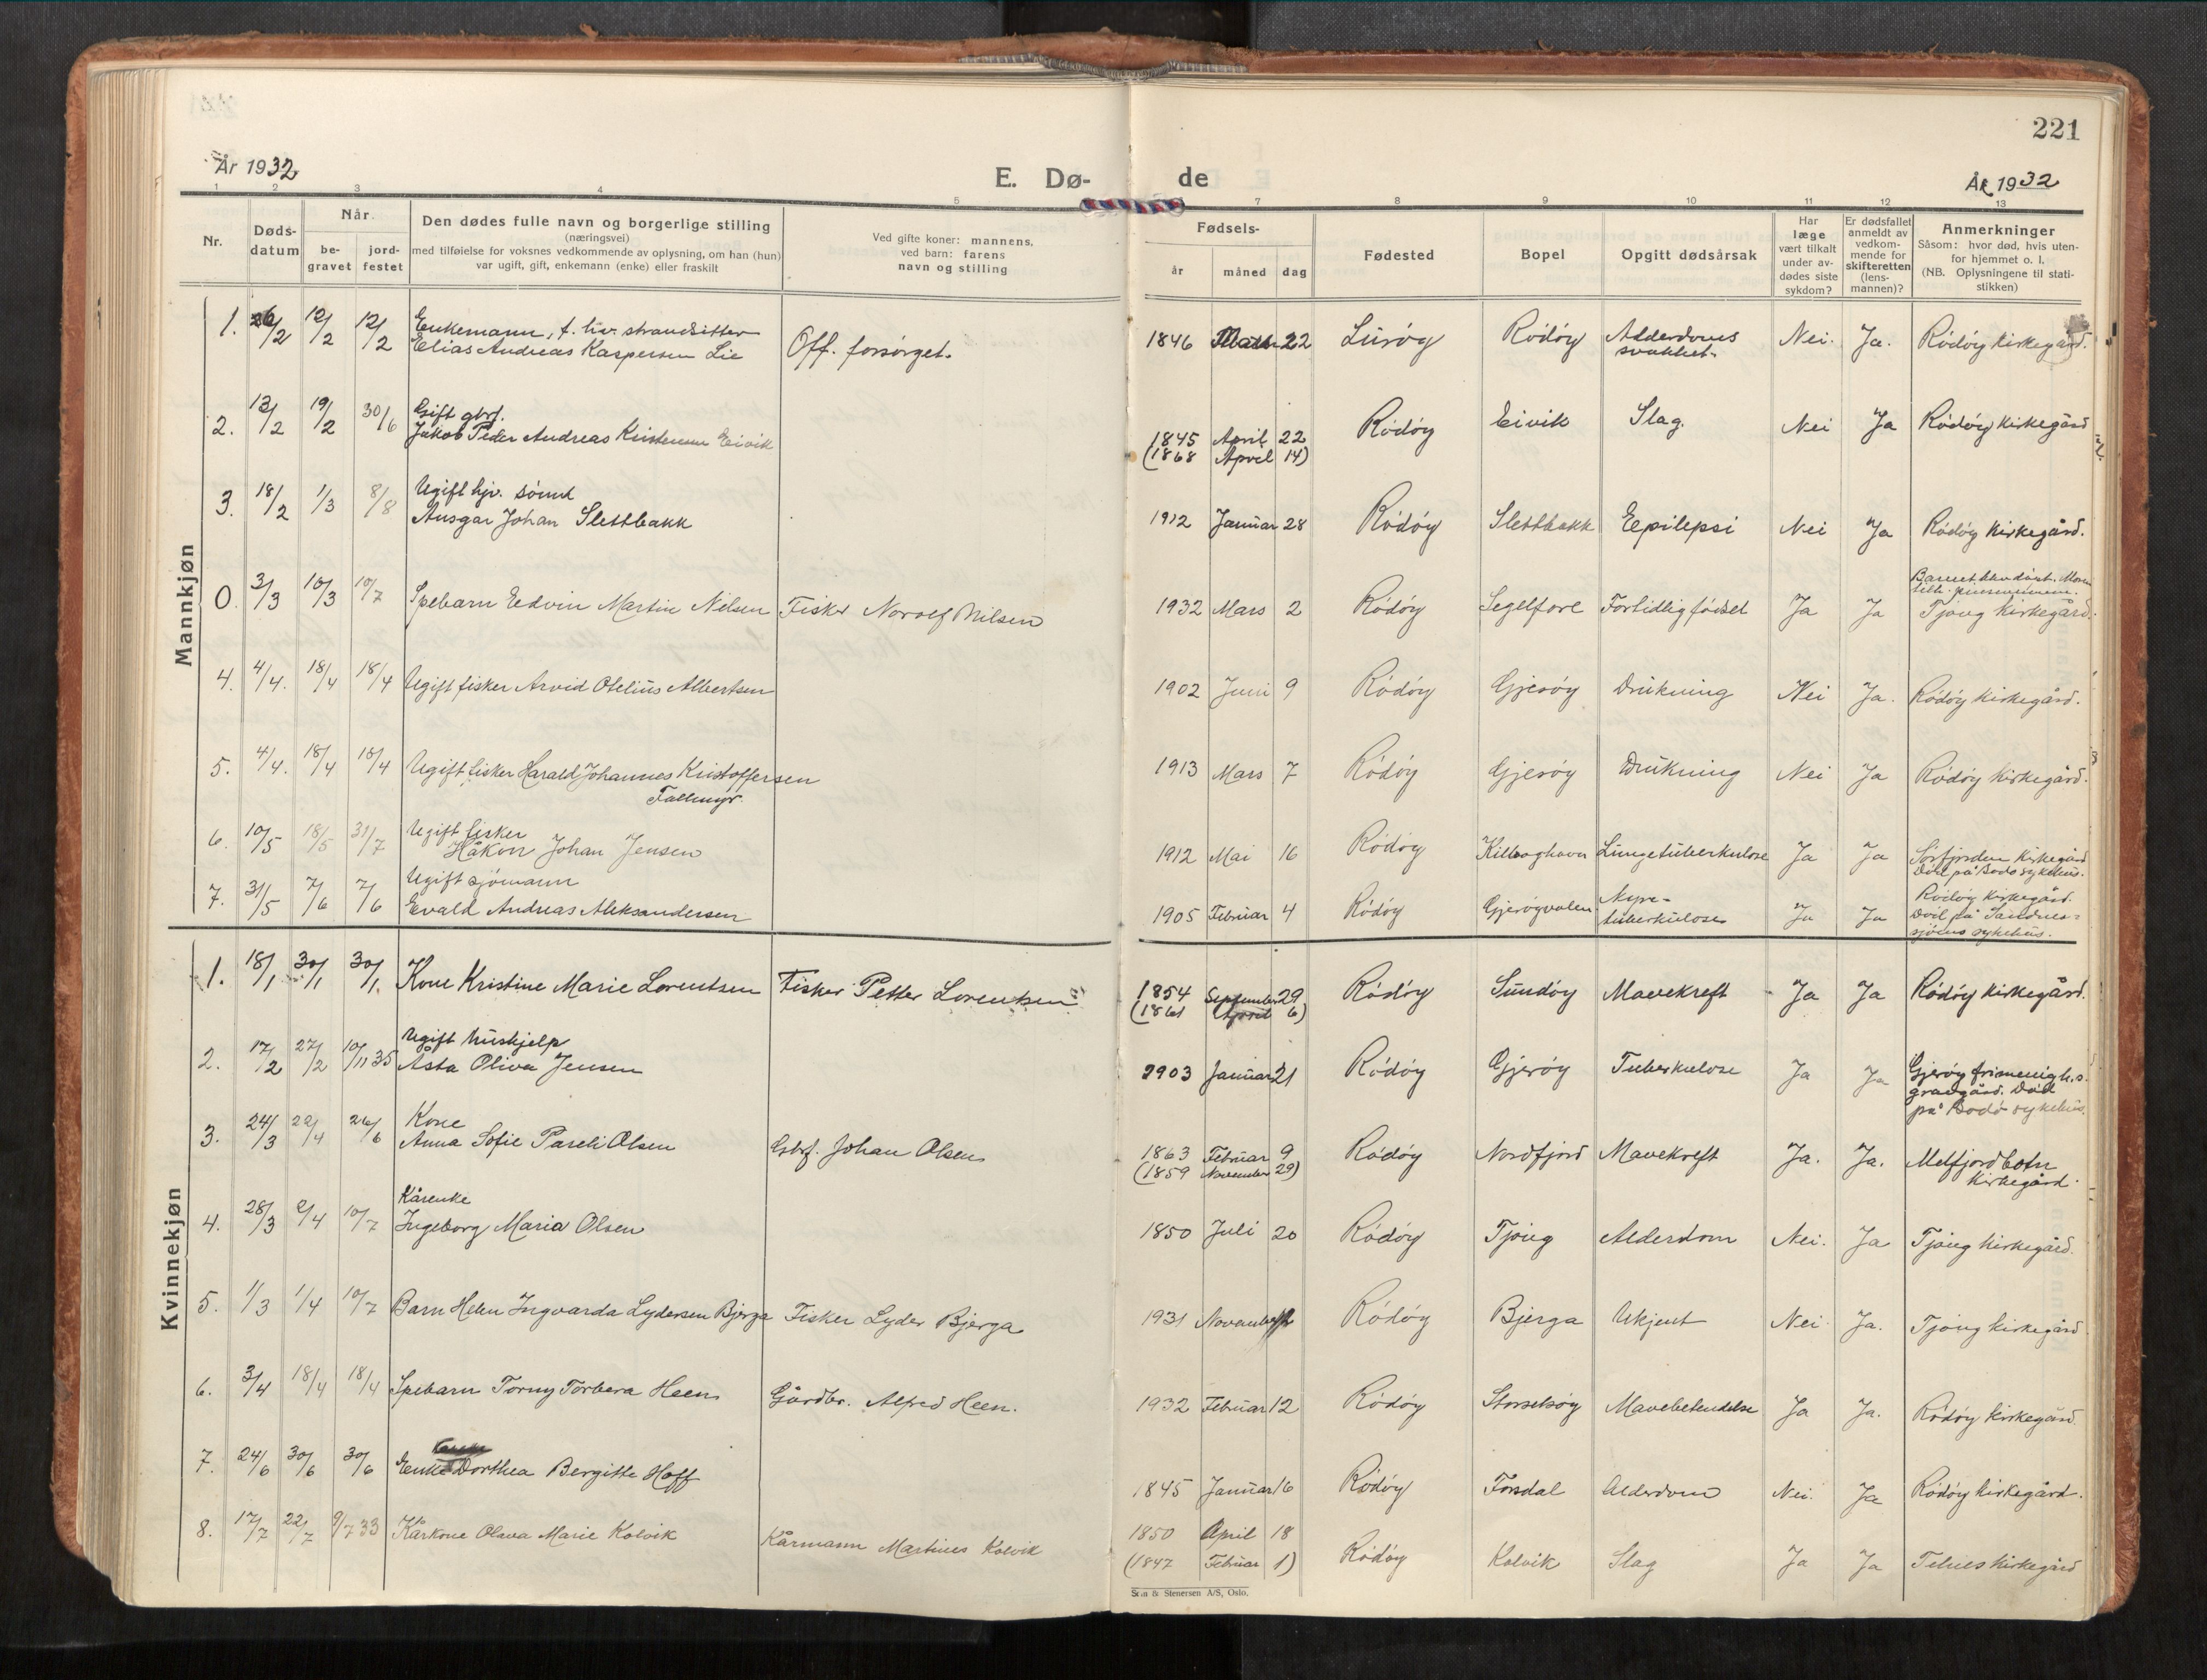 221
År 1932
E. Dø-
de
År 1932
1 2 3 4 5 7 8 9 10 11 12 13
Nr.
Døds-
datum
Når
be-
gravet
jord-
festet
Den dødes fulle navn og borgerlige stilling
(næringsvei)
med tilføielse for voksnes vedkommende av oplysning, om han (hun)
var ugift, gift, enkemann (enke) eller fraskilt
Ved gifte koner: mannens,
ved barn: farens
navn og stilling
Fødsels-
år måned dag
Fødested
Bopel
Opgitt dødsårsak
Har
læge
vært tilkalt
under av-
dødes siste
sykdom?
Er dødsfallet
anmeldt av
vedkom-
mende for
skifteretten
(lens-
mannen)?
Anmerkninger
Såsom: hvor død, hvis uten-
for hjemmet o. l.
(NB. Oplysningene til stati-
stikken)
Mannkjøn
Enkemann, f. hv. strandsitter
1. 26/2 12/2 12/2 Elias Andreas Kaspersen Lie Off. forsørget. 1846 Mars 22 Lurøy Rødøy Alderdoms Nei. Ja. Rødøy kirkegård.
svakhet.
Gift gbrf.
2. 13/2 19/2 30/6 Jakob Peder Andreas Kristensen Eivik 1845 April 22 Rødøy Eivik Slag. Nei Ja Rødøy kirkegård
(1868 April 14)
Ugift hjv. sønn
3. 18/2 1/3 8/8 Ansgar Johan Slettbakk 1912 Januar 28 Rødøy Slettbakk Eepilepsi Nei Ja Rødøy kirkegård.
Barnet
0 3/3 10/3 10/7 Spebarn Edvin Martin Nilsen Fisker Norolf Nilsen 1932 Mars 2 Rødøy Segelfore Fortidlig fødsel Ja Ja Tjong kirkegård.
4. 4/4. 18/4 18/4 Ugift fisker Arvid Otelius Albertsen 1902 Juni 9 Rødøy Gjerøy Drukning Nei Ja. Rødøy kirkegård.
5. 4/4. 18/4 18/4 Ugift fisker Harald Johannes Kristoffersen 1913 Mars 7 Rødøy Gjerøy Drukning Nei Ja Rødøy kirkegård.
Fallmyr.
Ugift fisker
6. 10/5 18/5 31/7 Håkon Johan Jensen 1912 Mai 16 Rødøy Kilboghavn Lungetuberkulose Ja Ja Sørfjorden kirkegård
Død på Bodø sykehus.
Ugift sjømann
7. 31/5 7/6 7/6 Evald Andreas Aleksandersen 1905 Februar 4 Rødøy Gjerøyvalen Nyre- Ja Ja Rødøy kirkegård.
tuberkulose
Død på Sandnes-
sjøens sykehus.
Kvinnekjøn
1. 18/1 30/1 30/1. Kone Kristine Marie Lorentsen Fisker Petter Lorentsen 1854 September 29 Rødøy Sundøy Mavekreft Ja Ja Rødøy kirkegård.
(1861 April 6)
Ugift hushjelp
2. 17/2 27/2 10/11 35 Åsta Oliva Jensen 1903 Januar 21 Rødøy Gjerøy Tuberkulose Ja Ja Gjerøy frimenigh.s.
gravgård. Død
på Bodø sykehus.
Kone
3. 24/3 22/4 26/6 Anna Sofie Pareli Olsen Gbrf. Johan Olsen 1863 Februar 9 Rødøy Nordfjord Mavekreft Ja. Ja. Melfjordbotn
(1859 November 29) kirkegård.
Kårenke
4. 28/3 9/4 10/7 Ingeborg Maria Olsen 1850 Juli 20 Rødøy Tjong Alderdom Nei. Ja Tjong kirkegård.
5. 1/3 1/4 10/7 Barn Helen Ingvarda Lydersen Bjerga Fisker Lyder Bjerga 1931 November 12 Rødøy Bjerga Ukjent Nei Ja. Tjong kirkegård
6. 3/4 18/4 18/4 Spebarn Torny Torbera Heen Gårdbr. Alfred Heen. 1932 Februar 12 Rødøy Storselsøy Mavebetendelse Ja Ja. Rødøy kirkegård
7. 24/6 30/6 30/6 Enke Dorthea Bergitte Hoff 1845 Januar 16 Rødøy Forsdal Alderdom Nei. Ja Rødøy kirkegård.
8. 17/7 22/7 9/7 33 Kårkone Olava Marie Kolvik Kårmann Martines Kolvik 1850 April 18 Rødøy Kolvik Slag Ja Ja Telnes kirkegård
(1847 Februar 1)
& Stenersen A/S, Oslo.